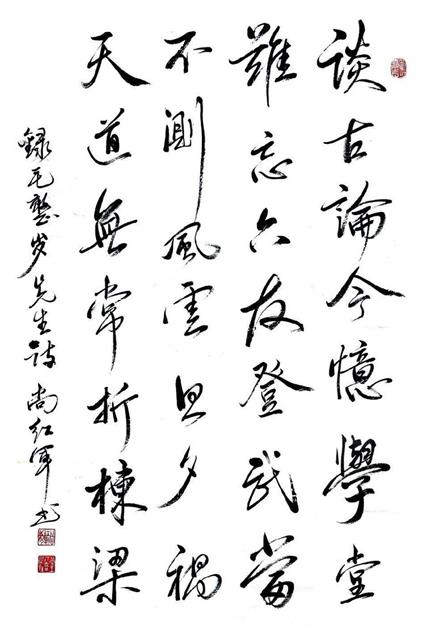 談古論今憶學堂
難忘六友登武當
不測風雲旦夕禍
天道無常折棟梁
錄毛岁先生詩 尚红军书